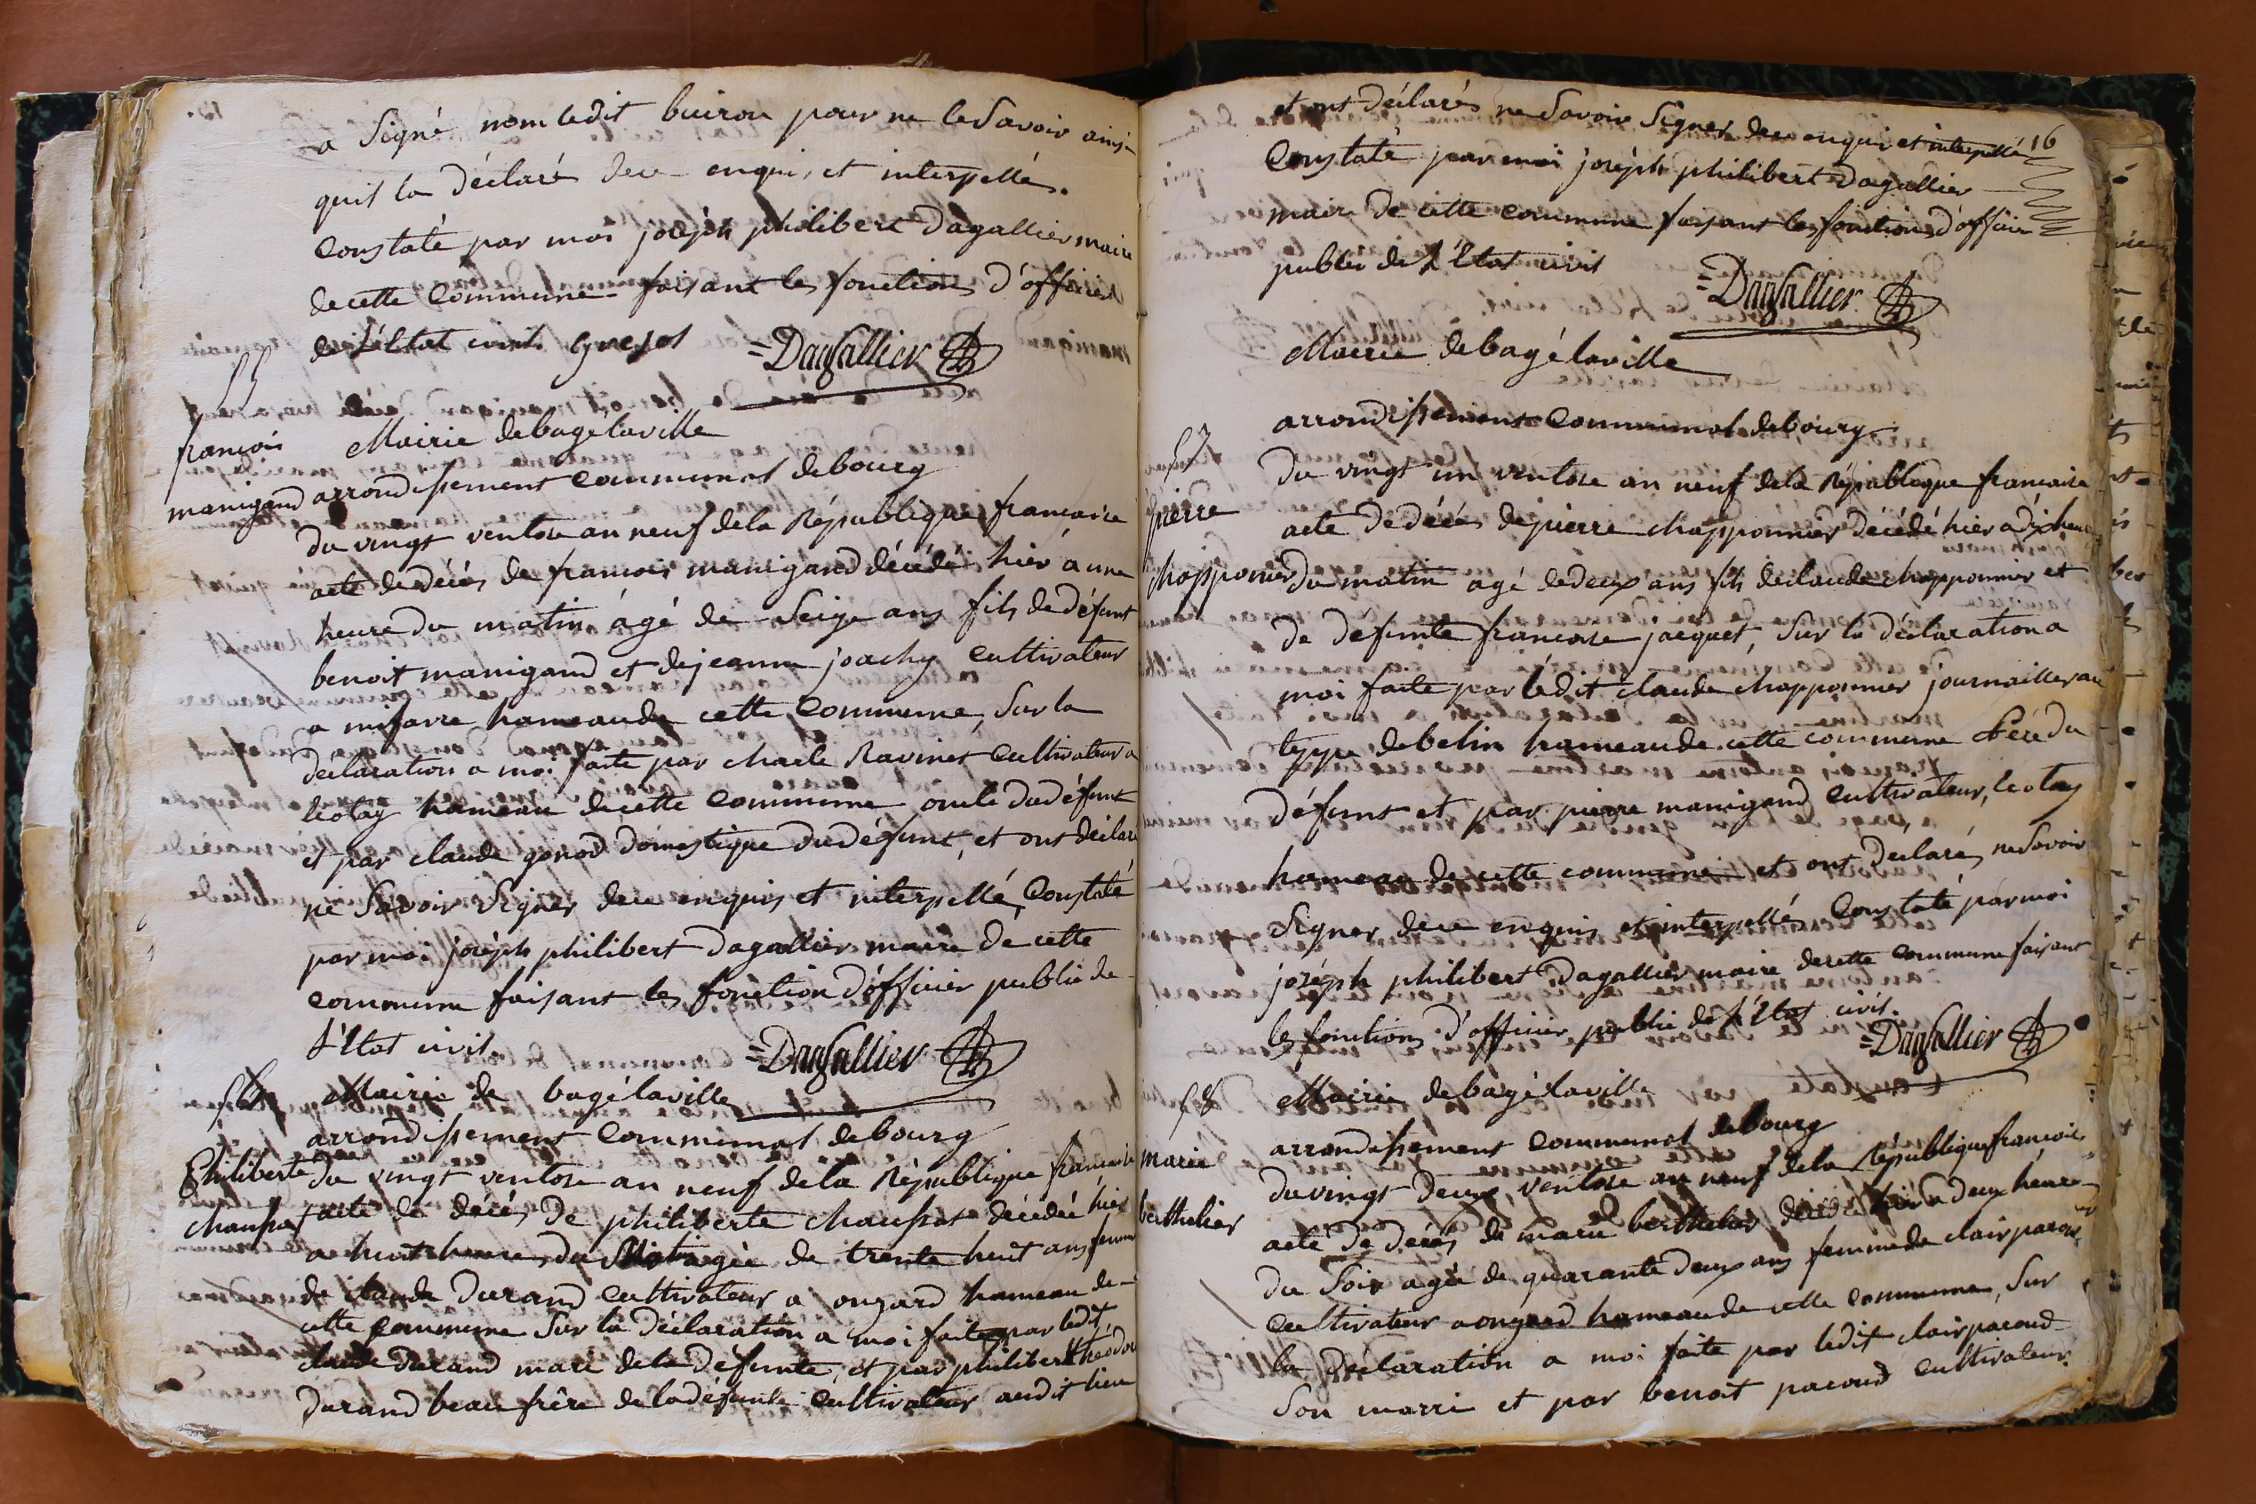 a Signé nom ledit buiron pour ne le Savoir ainsi
quil la déclaré de ce enquis et interpellé.
Constaté par moi joséph philibert Dagallier maire
de cette Commune faisant les fonctions d'officier
de l'éltat civil Guejot =Dagallier
55
françois
manigand
Mairie de bagé laville
arrondissement Communal de bourg
du vingt ventose an neuf de la République francaise
acte de décés de francois manigand décédé hier a une
heure du matin âgé de Seize ans fils de défunt
benoit manigand et de jeanne joachy cultivateur
a mifarre hameau de cette Commune, Sur la
déclaration a moi faite par charle Ravinet Cultivateur a
lestag hameau de cette Commune oncle du défunt
et par claude gonod domestique du défunt, et ont déclaré
ne Savoir Signer de ce enquis et interpellé, Constaté
par moi joséph philibert dagallier maire de cette
commune faisant les fonction d'officier public de
l'état civil =Dagallier
56
Philiberte
chaussat
Mairie de bagé laville
arrondissement Communal de bourg
du vingt ventose an neuf de la République francaise
acte de décés de philiberte chaussat décédée hier
a huit heure du Matin agée de trente huit ans femme
de claude durand cultivateur a ongard hameau de
cette commune Sur la déclaration a moi faite par ledit
claude durand mari de la défunte, et par philibert théodore
durand beau frère de la défunte cultivateur audit lieu
16
et ont déclarés ne Savoir Signer de ce enquis et interpellé
Constaté par moi joséph philibert dagallier
maire de cette commune faisant les fonctions d'officier
public de l'état civil
=Dagallier
57
pierre
chapponier
Mairie de bagé laville
arrondissement Communal de bourg
Du vingt un ventose an neuf de la République francaise
acte de décés de pierre chapponier décédé hier a dix heure
du matin agé de deux ans fils de claude chapponier et
de defunte francoise jacquet, Sur la déclaration a
moi faite par lédit claude chapponier journaillier au
teppe de belin hameau de cette commune Pére du
défunt et par pierre manigand Cultivateur, lestag
hameau de cette commune et ont déclarés ne Savoir
Signer de ce enquis et interpellés Constaté par moi
joséph philibert Dagallier maire de cette commune faisant
les fonctions d'officier public de l'état civil.
=Dagallier
58
marie
berthelier
Mairie de bagé laville
arrondissement Communal de bourg
du vingt deux ventose an neuf de la République francoise
acte de décés de marie berthelier décédé hier a deux heure
du Soir agée de quarante deux ans femme de clair pacoud
cultivateur a ongard hameau de cette commune, Sur
la déclaration a moi faite par ledit clair pacoud
Son marri et par benoit pacoud cultivateur